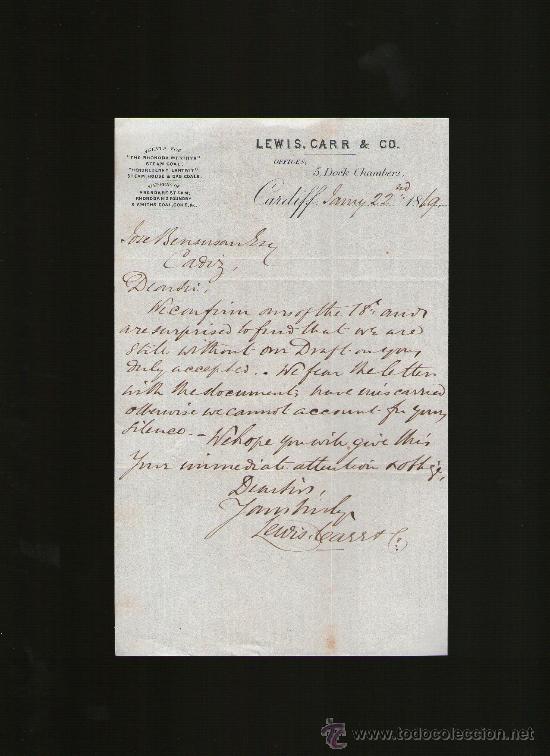 AGENTS FOR
"THE RHONDDA MERTHYR"
STEAM COAL.
STEAM, HOUSE & GAS COALS.
SHIPPERS OF
& SMITHS COAL, COKE, &c.
LEWIS, CARR & CO.
OFFICES,
5, Dock Chambers,
Cardiff Jany 22nd 1869
Jose Bensusan Esq
Cadiz,
Dear Sir,
We confirm ours of the 18th and
are surprised to find that we are
still without our Draft on you
duly accepted. - We fear the letter
with the documents have miscarried
otherwise we cannot account for your
silence. - We hope you will give this
your immediate attention & oblige,
Dear Sirs,
Yours truly
Lewis, Carr & Co.
www.todocoleccion.net